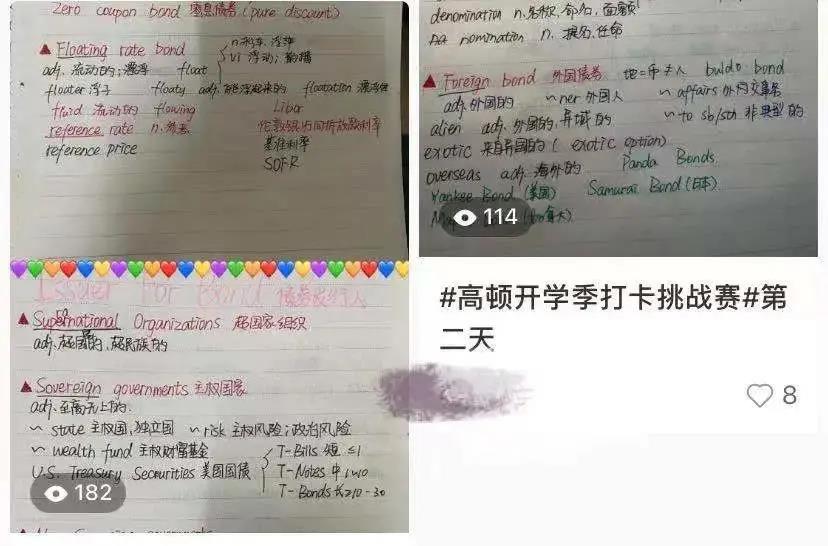 Zero coupon bond 零息债券 (pure discount)
▲ Floating rate bond
n.彩车,浮萍
vi 浮动;飘播
adj. 流动的;漂浮 float
floater 浮子 floaty adj. 能浮起来的 floatation
fluid 流动的 flowing Libor
reference rate n.参考 伦敦银行间拆放款利率
reference price 基准利率
SOFR
Issuer For Bond 债券发行人
▲ Supernational Organizations 超国家组织
adj. 超国家的,超民族的
▲ Sovereign governments 主权国家
adj. 至高无上的.
~ state 主权国,独立国 ~ risk 主权风险;政治风险
~ wealth fund 主权财富基金
U.S. Treasury Securities 美国国债
T-Bills 短 ≤1
T-Notes 中 1~10
T-Bonds 长 >10-30
182
denomination n.名称,命名,面额
nomination n. 提名,任命
▲ Foreign bond 外国债券 地=币≠人 buldo bond
adj. 外国的 ~ner 外国人 ~ affairs 外交事务
alien adj. 外国的,异域的 ~ to sb/sth 非典型的
exotic 来自异国的 ( exotic option)
overseas adj. 海外的 Panda Bonds
Yankee Bond (美国) Samurai Bond (日本)
114
#高顿开学季打卡挑战赛#第
二天
8